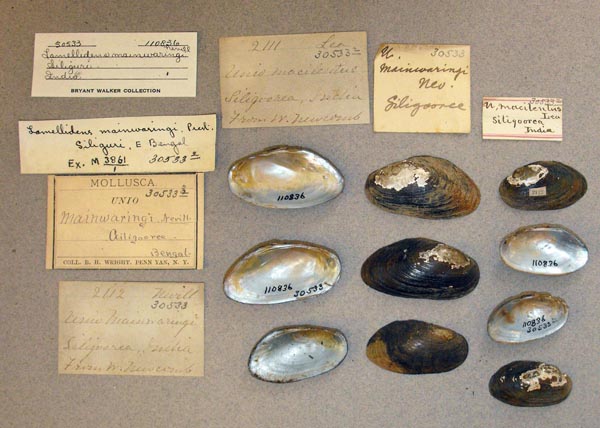 30533 110836
Nevill
Lamellidens mainwaringi
Siliguri
India
BRYANT WALKER COLLECTION
Lamellidens mainwaringi, Prest.
Siliguri, E Bengal
Ex. M 3861 30533 2
1
MOLLUSCA. 30533 3
UNIO
Mainwaringi Nevill
Siligoorea
Bengal
COLL. B. H. WRIGHT. PENN YAN, N. Y.
2112 Nevill
30533
Unio Mainwaringi
Siligorea, India
From W. Newcomb
2111 Lea
30533
Unio macilentus
Siligoorea, India
From W. Newcomb
U. 30533
Mainwaringi
Nev.
Siligooree
30533 2
U. macilentus
Lea
Siligoorea
India
110836
110836
30533
110836
110836
30533